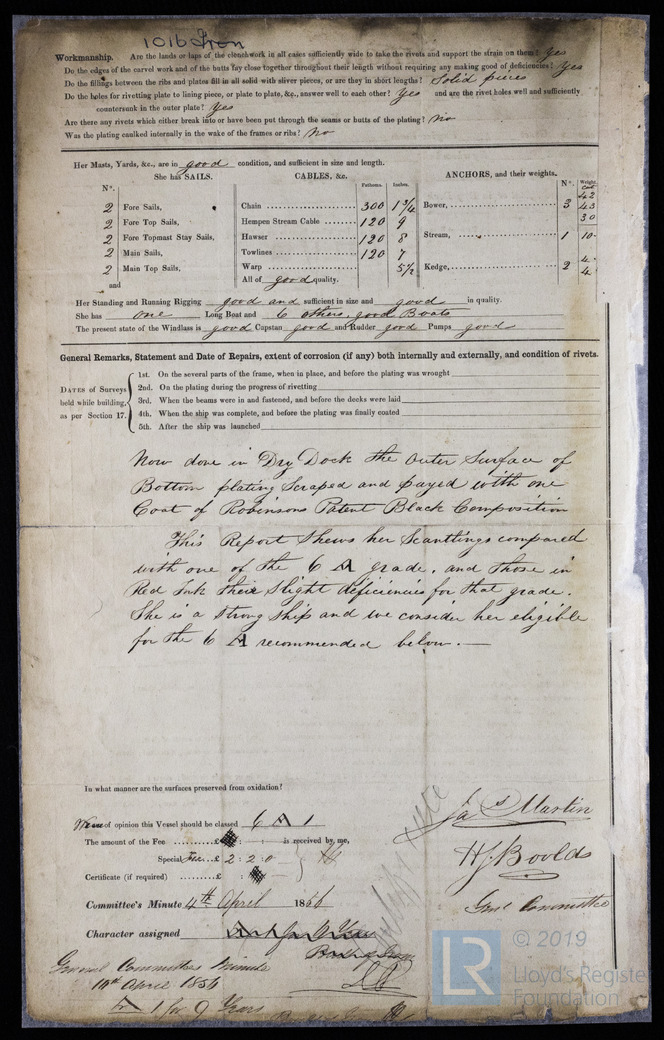 1016 Iron
Workmanship. Are the lands or laps of the clenchwork in all cases sufficiently wide to take the rivets and support the strain on them? Yes
Do the edges of the carvel work and of the butts lay close together throughout their length without requiring any making good of deficiencies? Yes
Do the fillings between the ribs and plates fill in all solid with sliver pieces, or are they in short lengths? Solid pieces
Do the holes for rivetting plate to lining piece, or plate to plate, &c., answer well to each other? Yes and are the rivet holes well and sufficiently
countersunk in the outer plate? Yes
Are there any rivets which either break into or have been put through the seams or butts of the plating? No
Was the plating caulked internally in the wake of the frames or ribs? No
Her Masts, Yards, &c., are in good condition, and sufficient in size and length.
She has SAILS. CABLES, &c. ANCHORS, and their weights.
N°. Fathoms. Inches. N°. Weight. Cwt
2 Fore Sails, Chain 300 1 3/4 Bower, 3 42 43 30
2 Fore Top Sails, Hempen Stream Cable 120 9
2 Fore Topmast Stay Sails, Hawser 120 8 Stream, 1 10
2 Main Sails, Towlines 120 7
2 Main Top Sails, Warp 5½ Kedge, 2 4 4
and All of good quality.
Her Standing and Running Rigging good and sufficient in size and good in quality.
She has one Long Boat and 6 others, good Boats
The present state of the Windlass is good Capstan good and Rudder good Pumps good
General Remarks, Statement and Date of Repairs, extent of corrosion (if any) both internally and externally, and condition of rivets.
DATES of Surveys held while building, as per Section 17.
1st. On the several parts of the frame, when in place, and before the plating was wrought
2nd. On the plating during the progress of rivetting
3rd. When the beams were in and fastened, and before the decks were laid
4th. When the ship was complete, and before the plating was finally coated
5th. After the ship was launched
Now done in Dry Dock the Outer Surface of
Bottom plating Scraped and payed with one
Coat of Robinsons Patent Black Composition
This Report shews her Scantlings compared
with one of the 6 A grade, and those in
Red Ink their slight deficiencies for that grade.
She is a strong ship and we consider her eligible
for the 6 A recommended below.—
In what manner are the surfaces preserved from oxidation?
We are of opinion this Vessel should be classed 6 A 1
The amount of the Fee £ : : is received by me,
Special Fee £ 2 : 2 : 0
Certificate (if required) £ :
Jas Martin
H J Boolds
Committee's Minute 4th April 1856
Genl Committee
Character assigned
General Committees Minute
10th April 1856
A 1 for 9 Years
LR © 2019
Lloyd's Register
Foundation